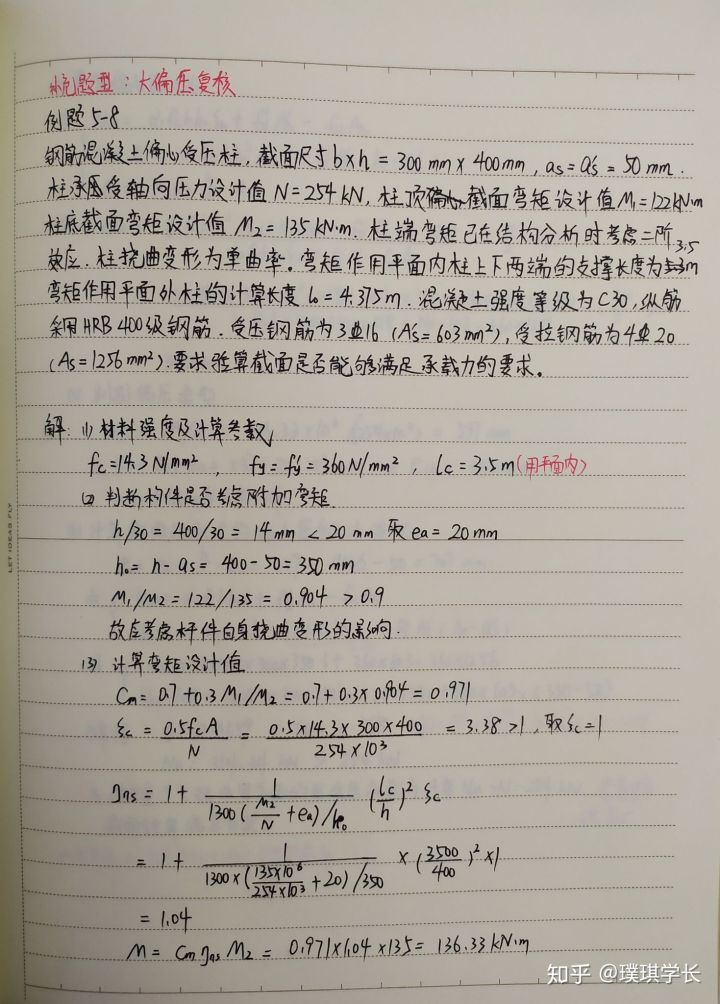 补充题型：大偏压复核
例题5-8
钢筋混凝土偏心受压柱，截面尺寸b×h = 300 mm × 400 mm，as = a's = 50 mm.
柱承受轴向压力设计值N=254 kN，柱顶截面弯矩设计值M₁=122 kN·m
柱底截面弯矩设计值 M₂ = 135 kN·m. 柱端弯矩已在结构分析时考虑二阶
效应. 柱挠曲变形为单曲率。弯矩作用平面内柱上下两端的支撑长度为3.5m
弯矩作用平面外柱的计算长度 l₀ = 4.375m. 混凝土强度等级为C30, 纵筋
采用HRB400级钢筋. 受压钢筋为3Φ16 (A's=603mm²), 受拉钢筋为4Φ20
(As=1256mm²). 要求验算截面是否能够满足承载力的要求。
解. (1) 材料强度及计算参数
fc=14.3N/mm², fy=f'y=360N/mm², lc=3.5m(用平面内)
(2) 判断构件是否考虑附加弯矩
h/30 = 400/30 = 14mm < 20 mm 取 ea = 20mm
h₀ = h-as = 400-50 = 350 mm
M₁/M₂ = 122/135 = 0.904 > 0.9
故应考虑杆件自身挠曲变形的影响.
(3) 计算弯矩设计值
Cm = 0.7+0.3 M₁/M₂ = 0.7+0.3×0.904 = 0.971
ξc = 0.5fcA/N = 0.5×14.3×300×400/254×10³ = 3.38 >1, 取ξc=1
ηns = 1 + 1/1300(M₂/N + ea)/h₀ (lc/h)² ξc
= 1 + 1/1300×(135×10⁶/254×10³ + 20)/350 × (3500/400)² ×1
= 1.04
M = Cm ηns M₂ = 0.971×1.04×135 = 136.33 kN·m
LET IDEAS FLY
知乎 @璞琪学长